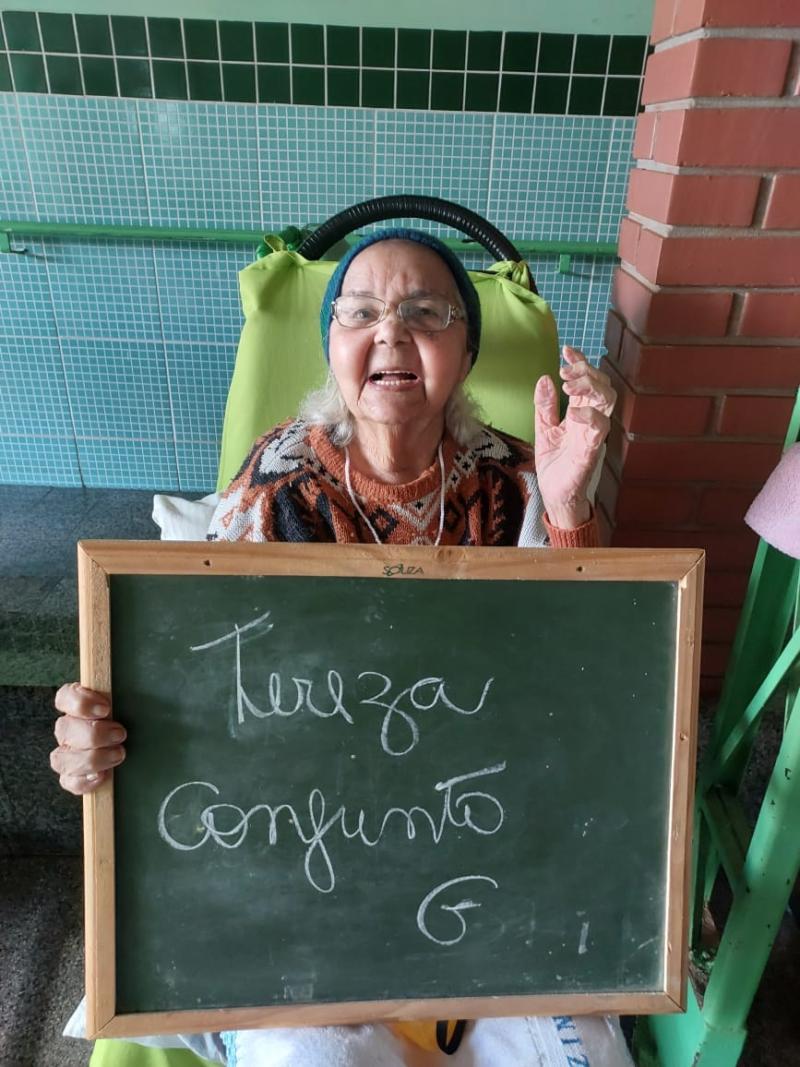 SOUZA
Tereza
Conjunto
G